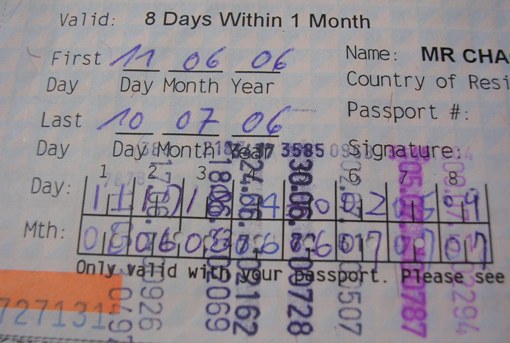 Valid: 8 Days Within 1 Month
First 11 06 06 Name: MR CHA
Day Day Month Year Country of Resi
Last 10 07 06 Passport #:
Day Day Month Year Signature:
3585
1 2 3 6 7 8
Day: 11 17 18 24 30 02 05 09
Mth: 06 06 06 06 06 07 07 07
Only valid with your passport. Please see
727131